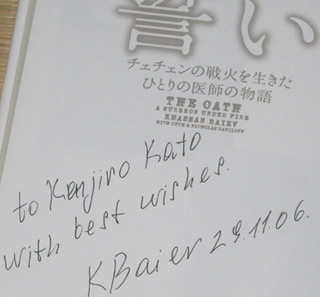 誓い
チェチェンの戦火を生きた
ひとりの医師の物語
THE OATH
A SURGEON UNDER FIRE
KHASSAN BAIEV
WITH RUTH & NICHOLAS DANILOFF
to Kenjiro Kato
with best wishes.
KBaiev 29.11.06.